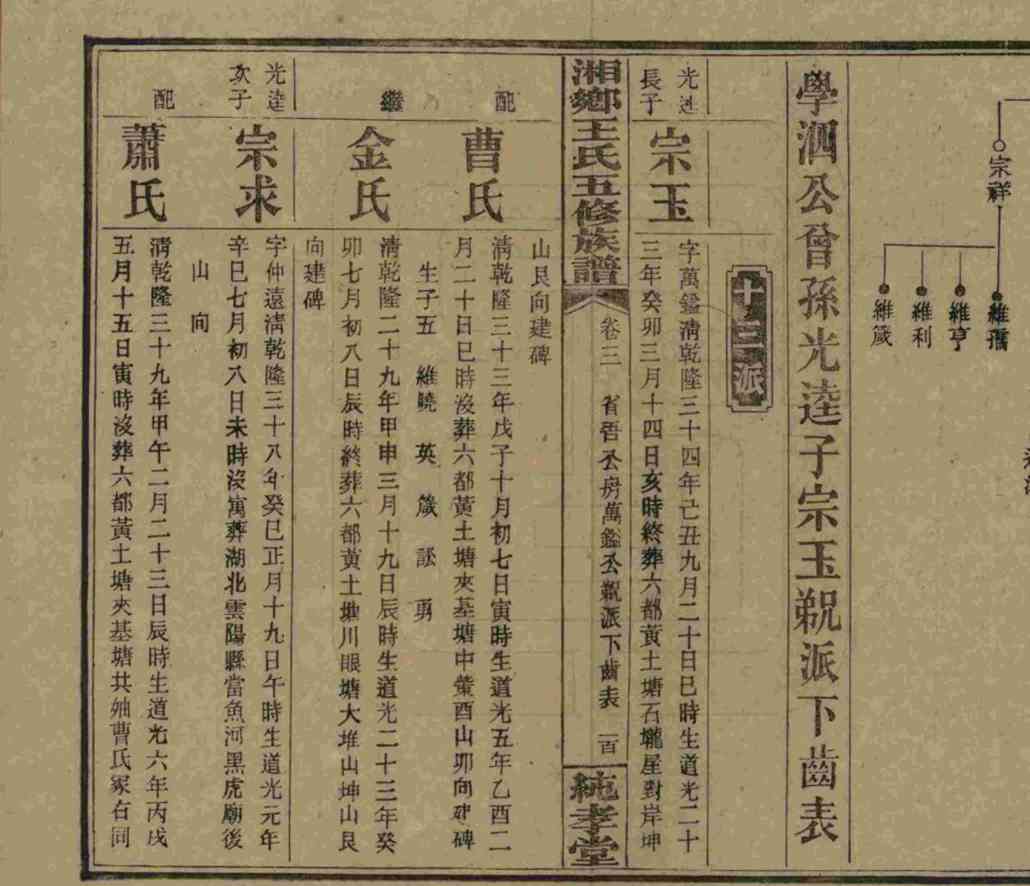 宗祥
維
維亨
維利
維箴
學泗公曾孫光逵子宗玉觀派下齒表
十三派
光逵
長子
宗玉
字萬鑑清乾隆三十四年己丑九月二十日巳時生道光二十
三年癸卯三月十四日亥時終葬六都黃土塘石壠屋對岸坤
湘鄉王氏五修族譜
卷三
省吾公房萬鑑公觀派下齒表
一百
純孝堂
山艮向建碑
配
曹氏
清乾隆三十三年戊子十月初七日寅時生道光五年乙酉二
月二十日巳時沒葬六都黃土塘夾基塘中塋酉山卯向建碑
生子五 維曉 英 箴 訟 勇
繼
金氏
清乾隆二十九年甲申三月十九日辰時生道光二十三年癸
卯七月初八日辰時終葬六都黃土塘川眼塘大堆山坤山艮
向建碑
光逵
次子
宗求
字仲遠清乾隆三十八年癸巳正月十九日午時生道光元年
辛巳七月初八日未時沒寓葬湖北雲陽縣當魚河黑虎廟後
山 向
配
蕭氏
清乾隆三十九年甲午二月二十三日辰時生道光六年丙戌
五月十五日寅時沒葬六都黃土塘夾基塘共妯曹氏冢右同